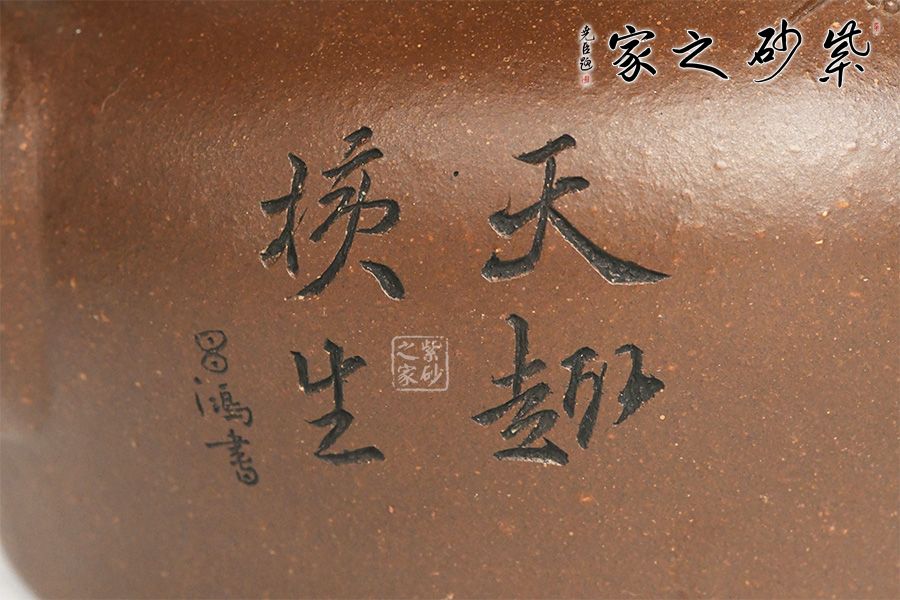 紫砂之家
尧臣题
天趣
横生
昌鸿书
紫砂
之家